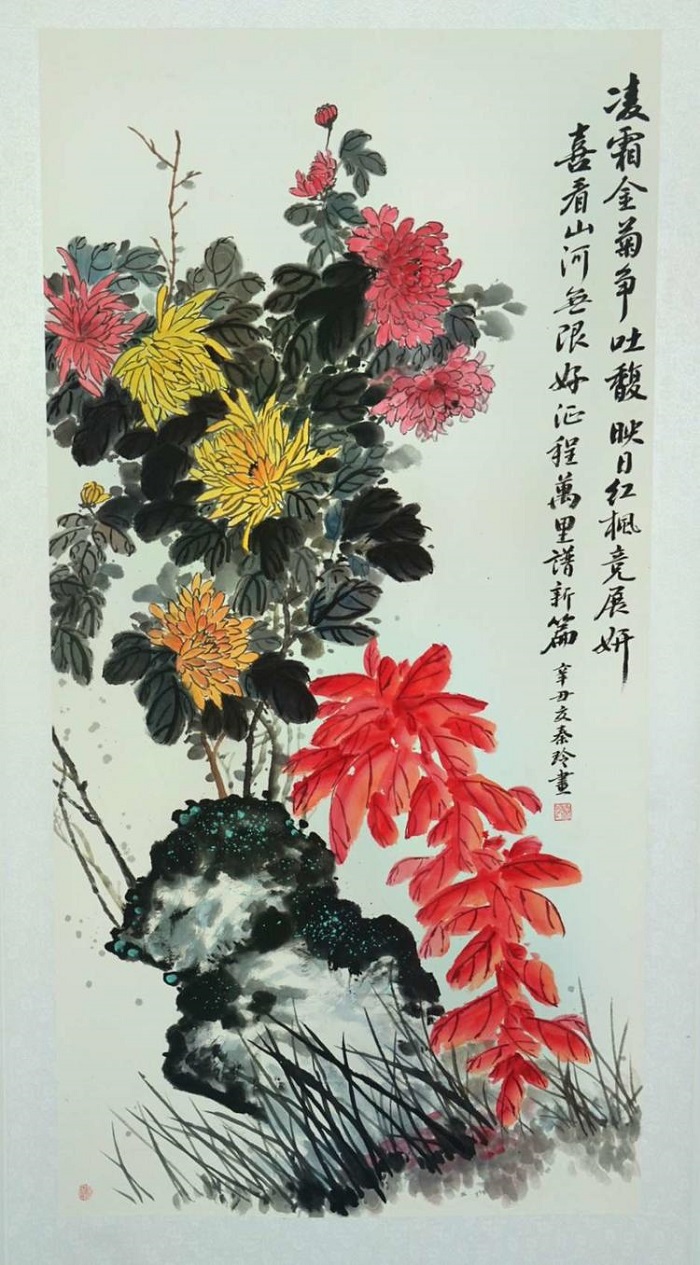 凌霜金菊争吐馥映日红楓竞展妍
喜看山河無限好征程萬里譜新篇
辛丑文秦玲畫